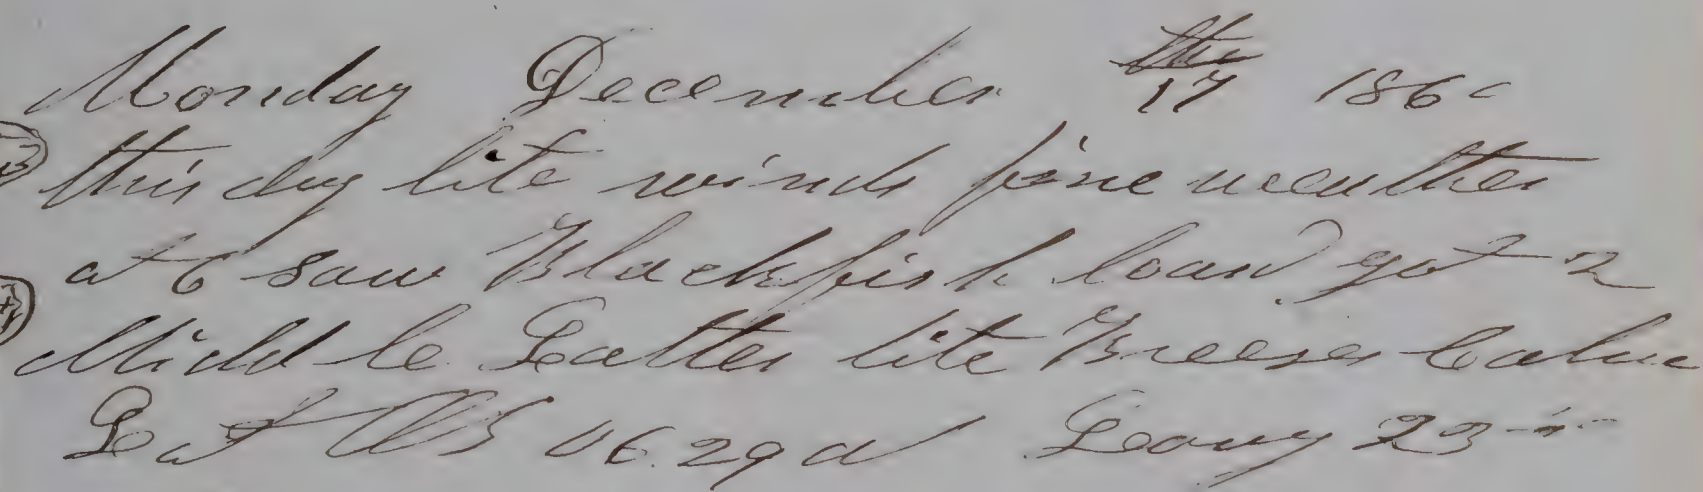 Monday December 17 the 1860
this day lite winds fine weather
at 6 saw Blackfish loard got 2
Middle Latter lite Breeses Calm
Lat 06.29 Long 23